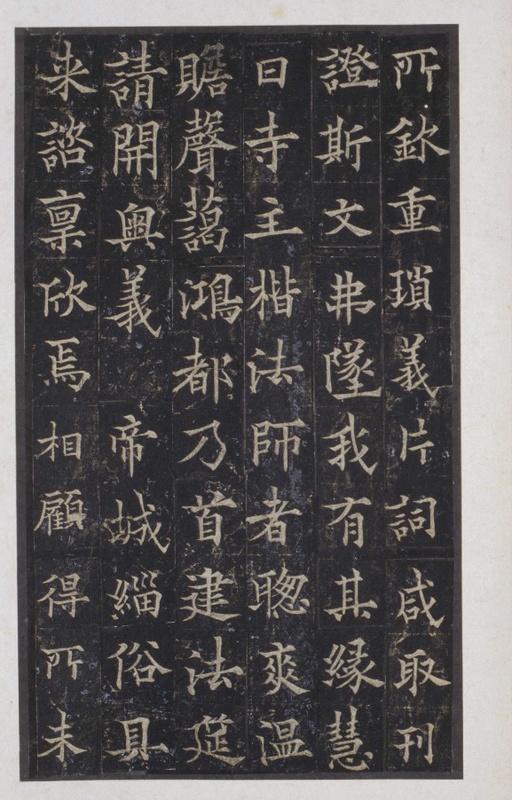 所欽重瑣義片詞咸取刊
證斯文弗墜我有其緣慧
日寺主楷法師者聰爽温
贍聲藹鴻都乃首建法莚
請開奧義帝城緇俗具
来諮稟欣焉相顧得所未